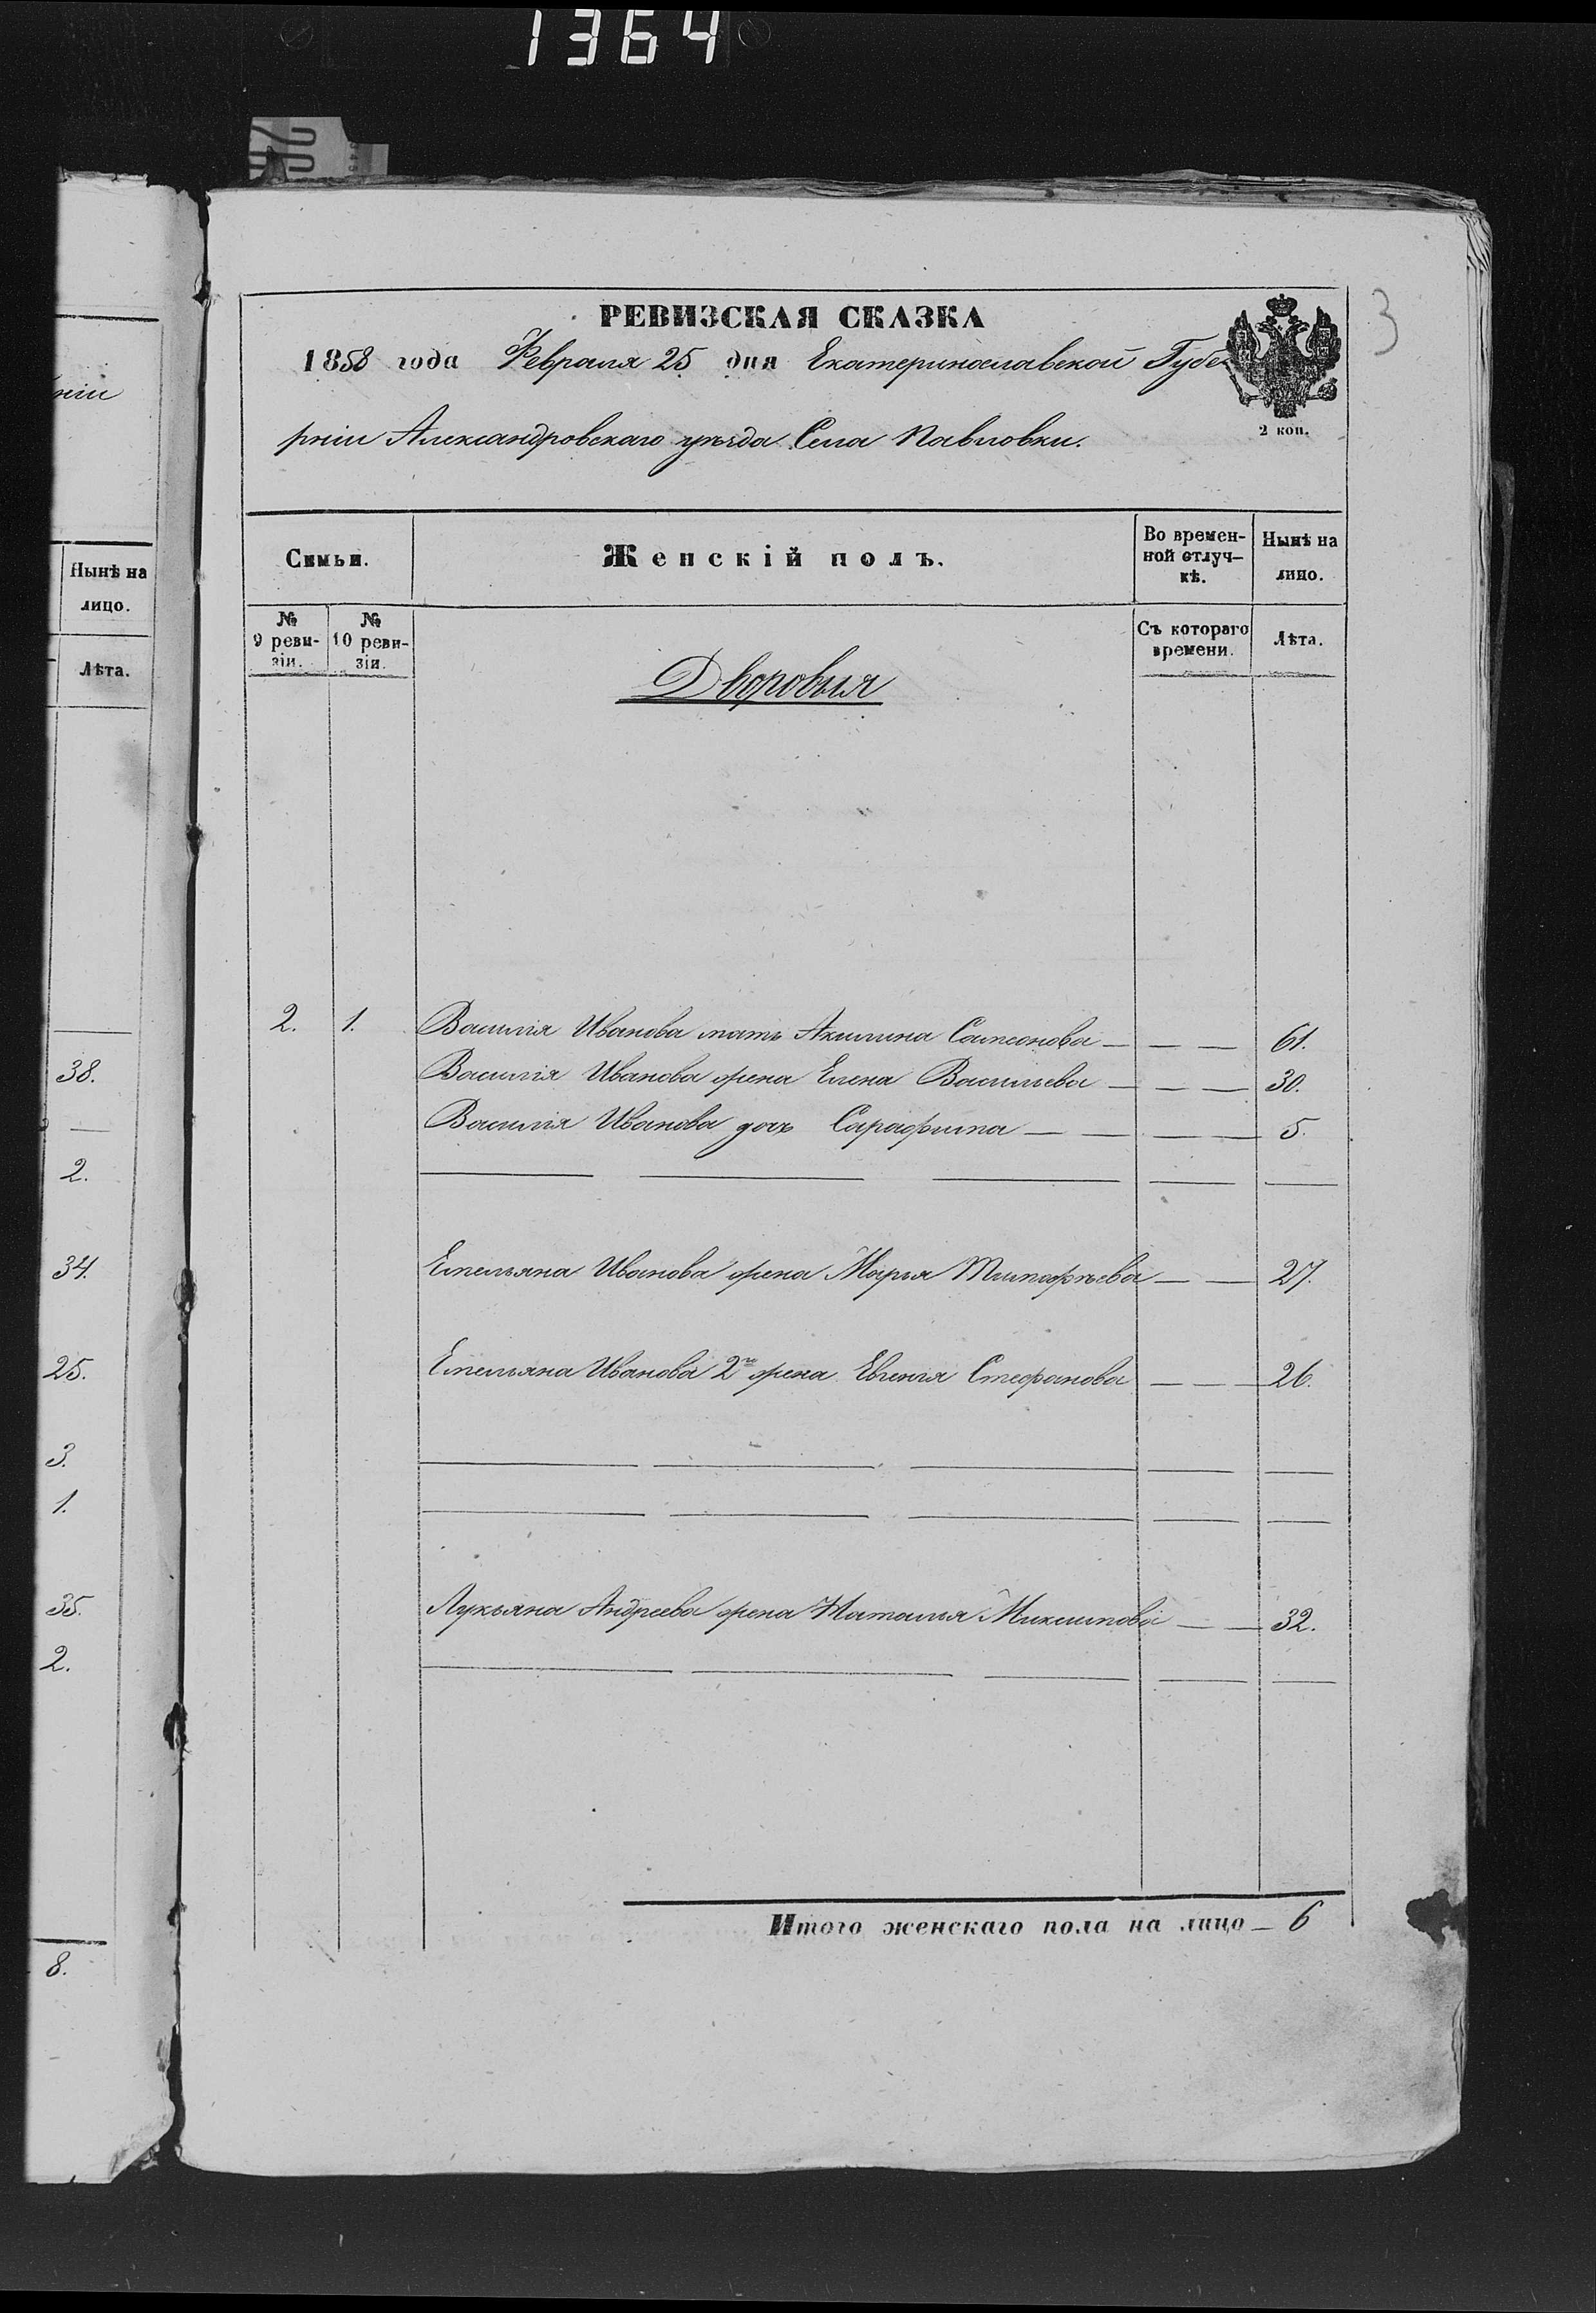 1364
3
РЕВИЗСКАЯ СКАЗКА
1858 года Февраля 25 дня Екатеринославской Губе
рніи Александровскаго уѣзда Села Павловки.
2 коп.
Семьи. Женскій полъ. Во времен-ной отлуч-кѣ. Нынѣ на лицо.
№ 9 реви-зіи. № 10 реви-зіи. Съ котораго времени. Лѣта.
Дворовыя
2. 1. Василія Иванова мать Акилина Сампсонова — — — 61.
Василія Иванова жена Елена Василиева — — — 30.
Василія Иванова дочь Сарафима — — — — 5.
Емельяна Иванова жена Марья Тимофѣева — — 27.
Емельяна Иванова 2го жена Евгенія Стефанова — — 26.
Лукьяна Андреева жена Наталья — — 32.
Итого женскаго пола на лицо — 6
ніи
Нынѣ на
лицо.
Лѣта.
38.
2.
34.
25.
3.
1.
35.
2.
8.